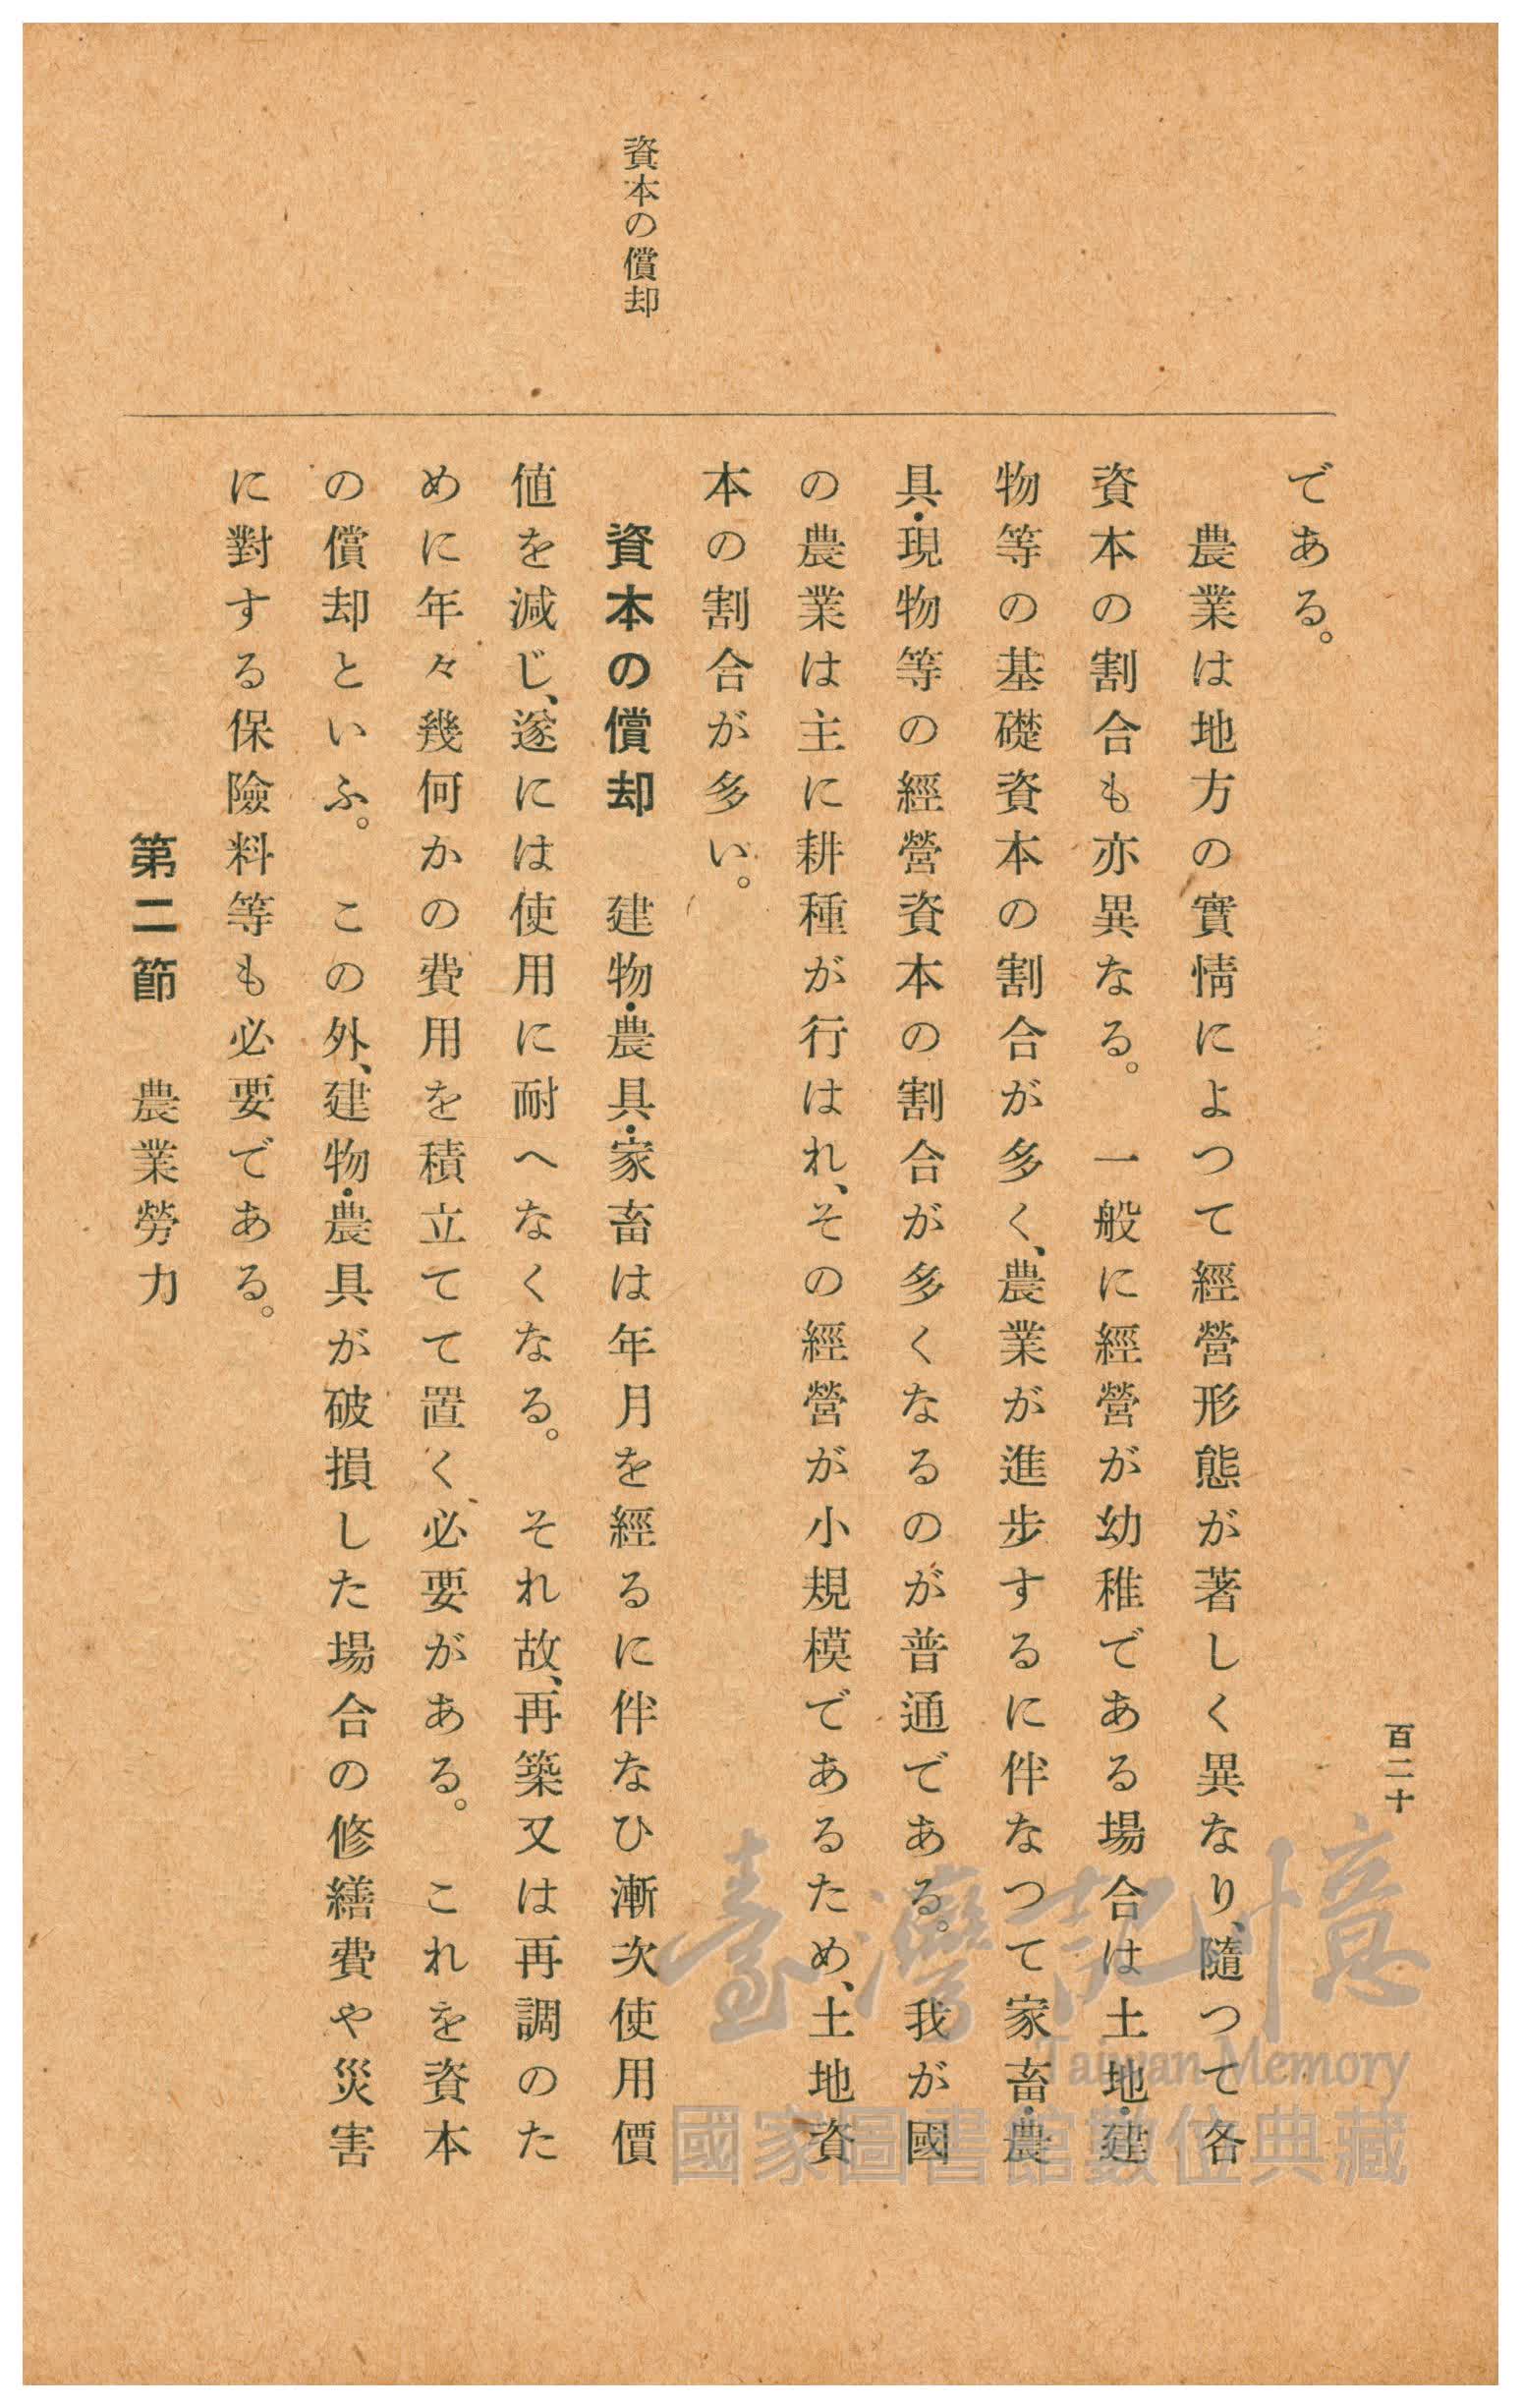 百二十
資本の償却
である。
農業は地方の實情によつて經營形態が著しく異なり、隨つて各
資本の割合も亦異なる。一般に經營が幼稚である場合は土地・建
物等の基礎資本の割合が多く、農業が進步するに伴なつて家畜・農
具・現物等の經營資本の割合が多くなるのが普通である。我が國
の農業は主に耕種が行はれ、その經營が小規模であるため、土地資
本の割合が多い。
資本の償却　建物・農具・家畜は年月を經るに伴なひ漸次使用價
値を減じ、遂には使用に耐へなくなる。それ故、再築又は再調のた
めに年々幾何かの費用を積立てて置く必要がある。これを資本
の償却といふ。この外、建物・農具が破損した場合の修繕費や災害
に對する保險料等も必要である。
第二節　農業勞力
臺灣記憶
Taiwan Memory
國家圖書館數位典藏